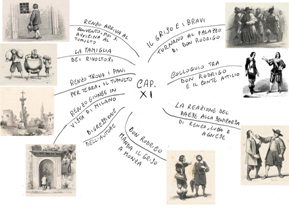 RENZO ARRIVA AL
CONVENTO, POI A
AVVICINA AL
TUMULTO
LA FAMIGLIA
DEI RIVOLTOSI
RENZO TROVA I PANI
PER TERRA, IN TUMULTO
RENZO GIUNGE IN
VISTA DI MILANO
DIGRESSIONE
DELL'AUTORE
CAP.
XI
IL GRISO E I BRAVI
TORNANO AL PALAZZO
DI DON RODRIGO
COLLOQUIO TRA
DON RODRIGO
E IL CONTE ATTILIO
LA REAZIONE DEL
PAESE ALLA SCOMPARSA
DI RENZO, LUCIA E
AGNESE
DON RODRIGO
MANDA IL GRISO
A MONZA